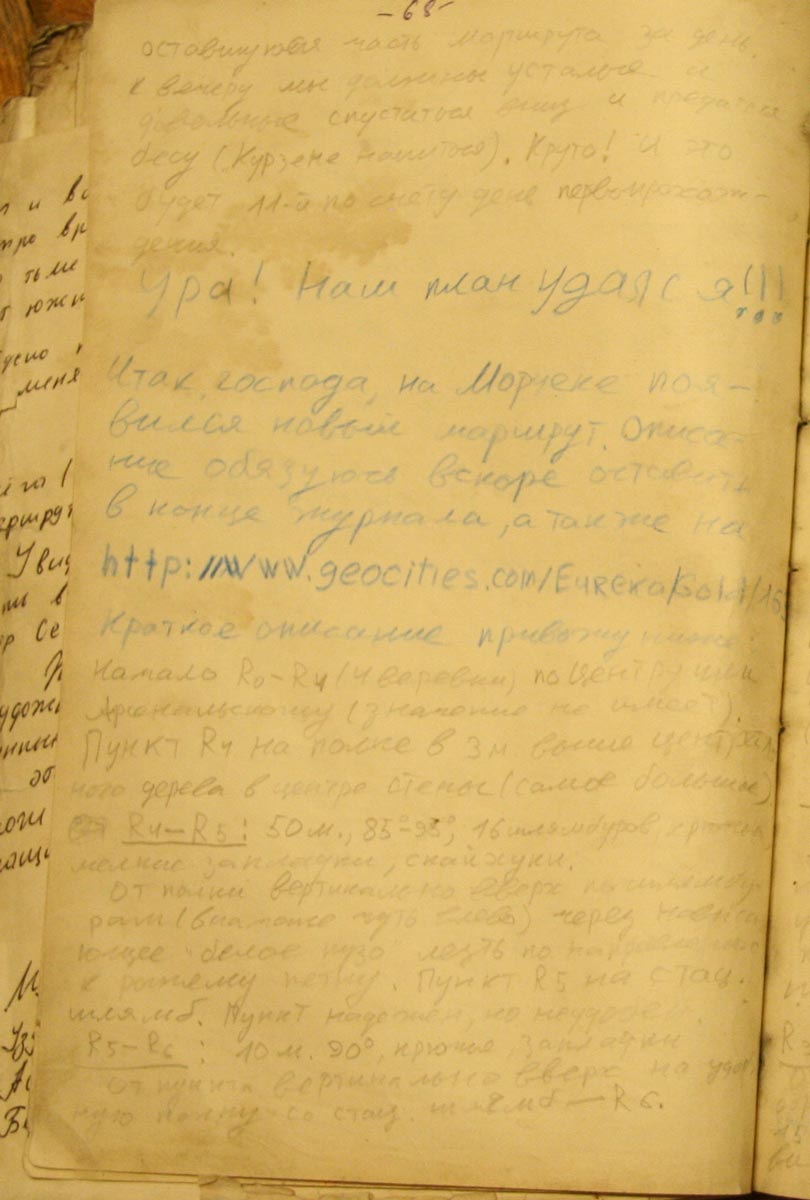 - 68 -
оставшуюся часть маршрута за день.
К вечеру мы должны усталые и
довольные спуститься вниз и предаться
бесу (Курзене напиться). Круто! И это
будет 11-й по счёту день первопрохож-
дения.
Ура! Нам план удался!!!
Итак, господа, на Морчеке поя-
вился новый маршрут. Описа-
ние обязуюсь вскоре оставить
в конце журнала, а также на
http://www.geocities.com/Eureka/Gold/16
Краткое описание привожу ниже:
Начало R0-R4 (4 веревки) по центру или
Арсенальскому (значение не имеет).
Пункт R4 на полке в 3 м. выше централь
ного дерева в центре стены (самое большое)
R4-R5: 50 м., 85°-95°, 16 шлямбуров, крючья,
мелкие закладки, скайхуки.
От полки вертикально вверх по шлямбу-
рам (вначале чуть влево) через нависа
ющее "белое пузо" лезть по направлению
к рыжему пятну. Пункт R5 на стац.
шлямб. Пункт надежен, но неудобен.
R5-R6: 10 м. 90°, крючья, закладки
От пункта вертикально вверх на удоб
ную полку со стац. шлямб - R6.